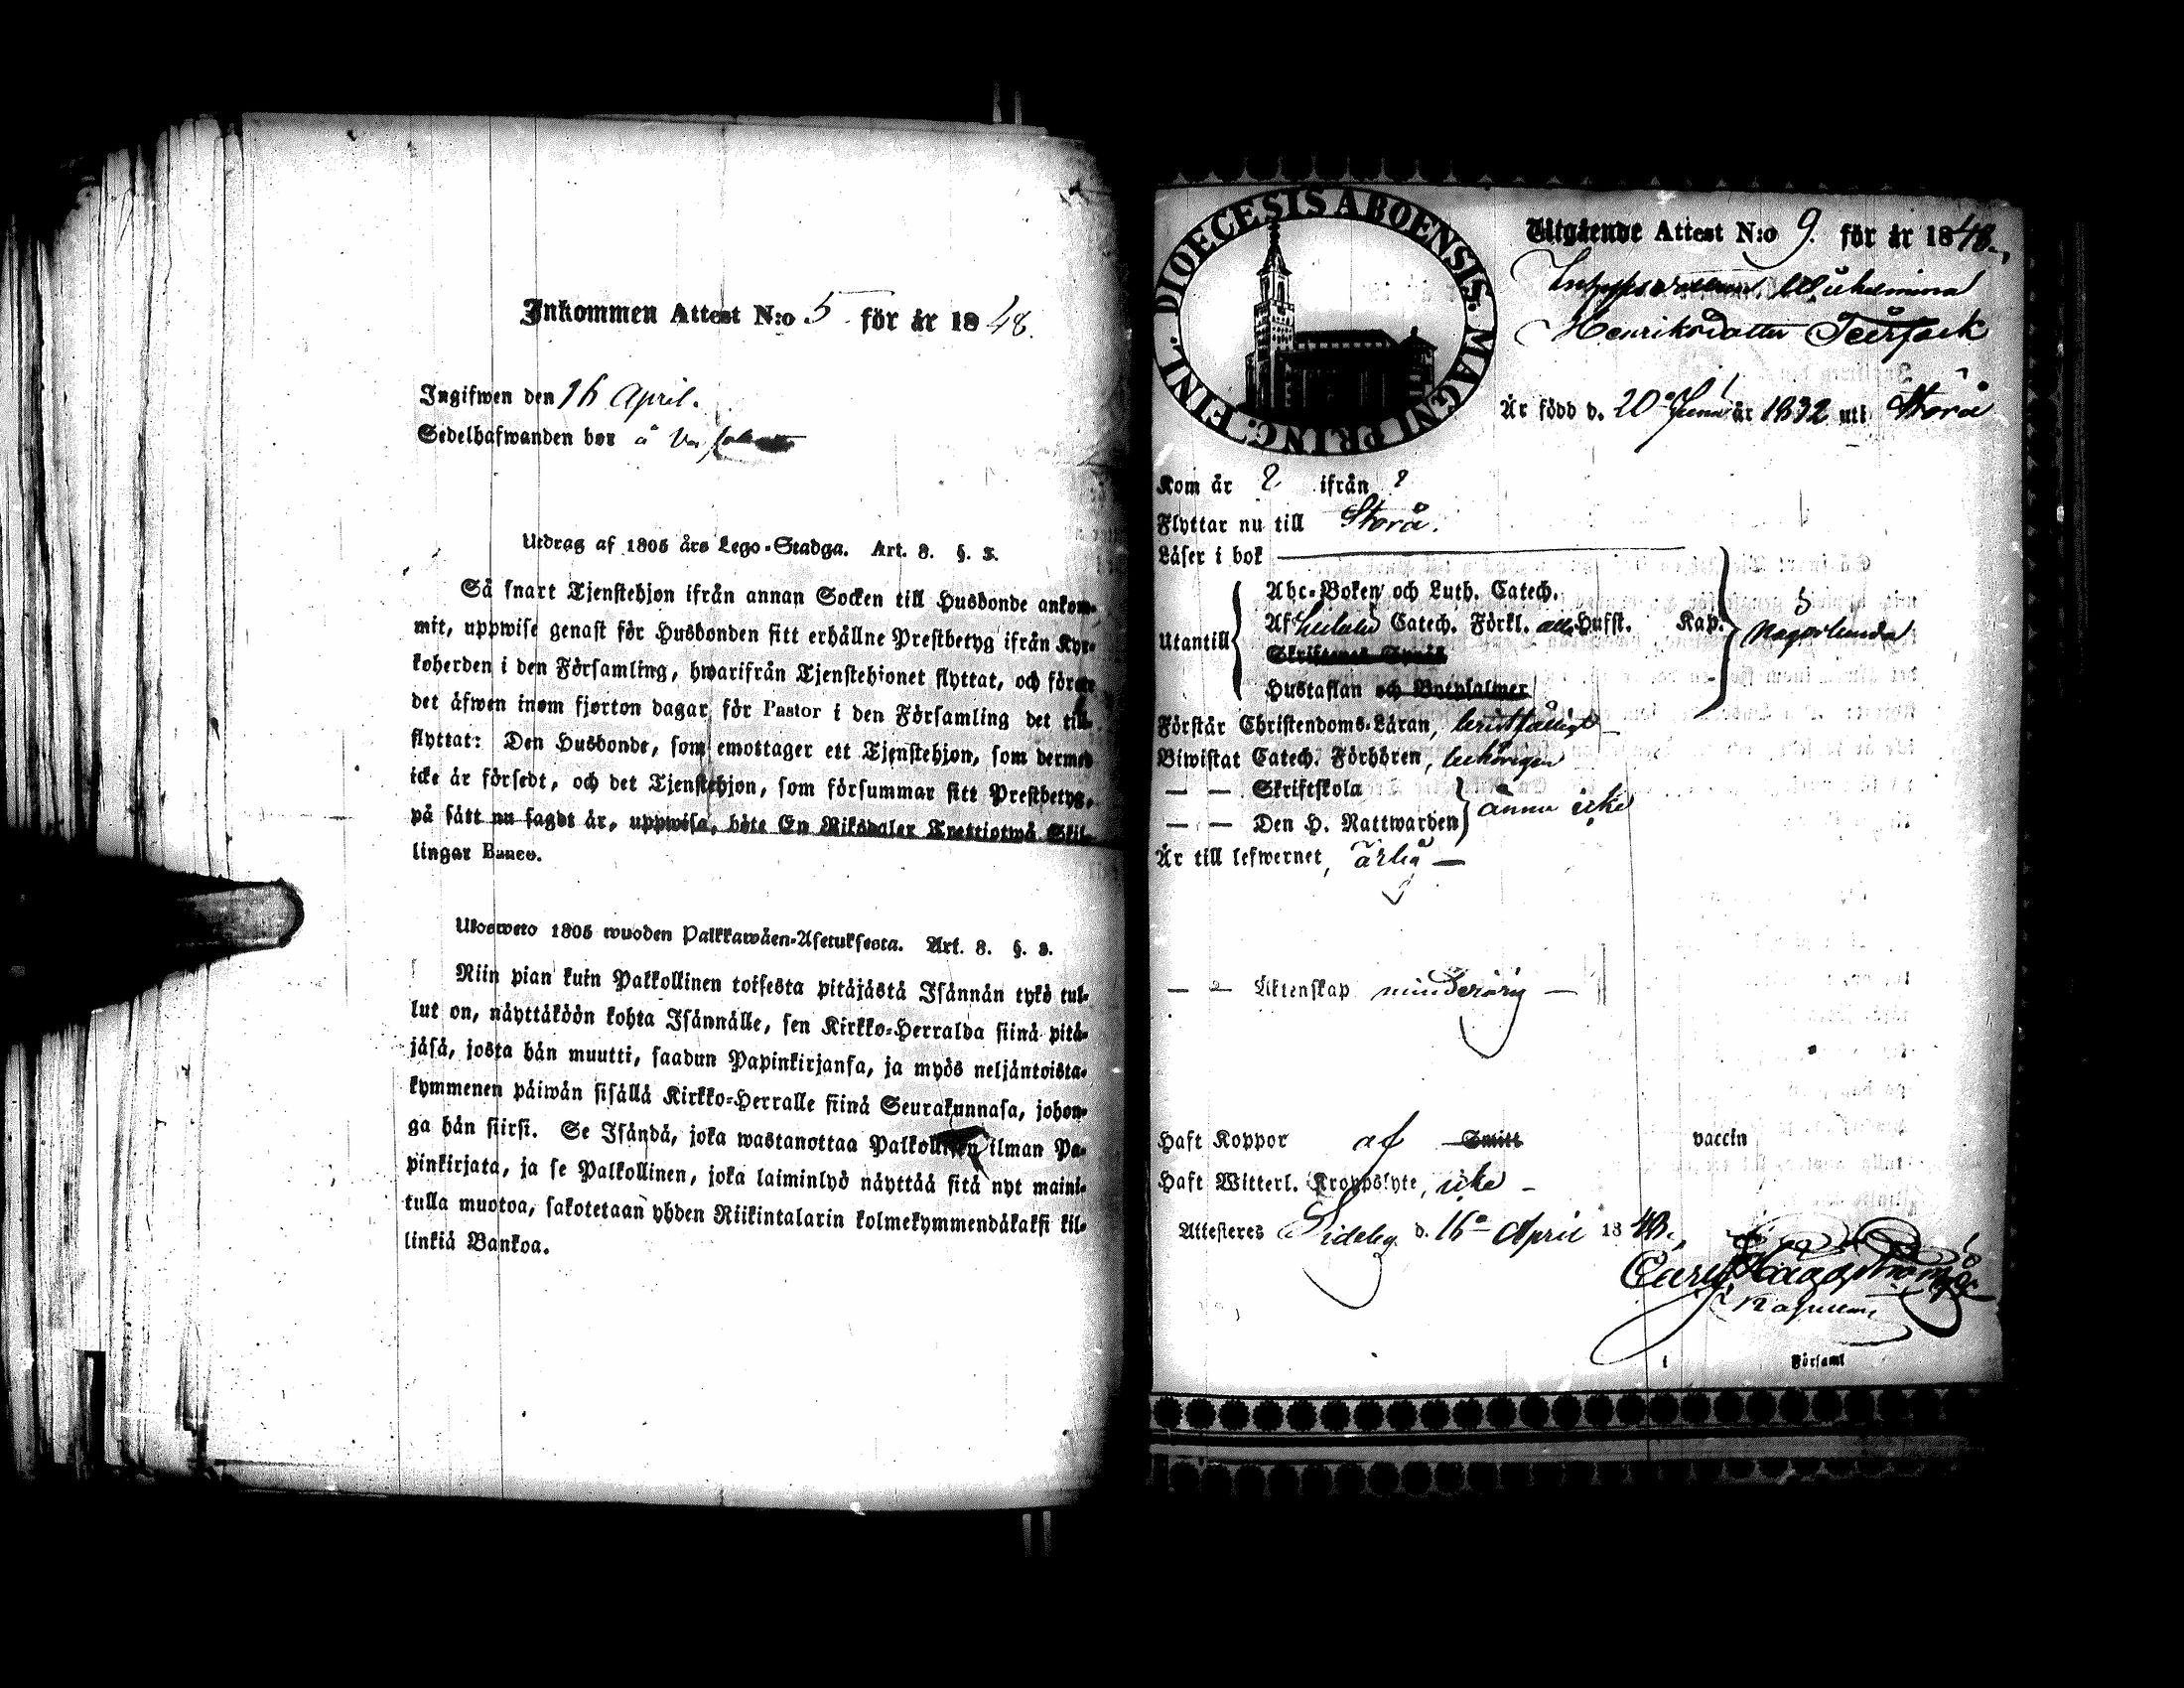 Inkommen Attest N:o 5 för år 1848.
Ingifwen den 16 April.
Sedelhafwanden bor å
Utdrag af 1805 års Lego-Stadga. Art. 8. §. 3.
Så snart Tjenstehjon ifrån annan Socken till Husbonde ankom-
mit, uppwise genast för Husbonden sitt erhållne Prestbetyg ifrån Kyr-
koherden i den Församling, hwarifrån Tjenstehionet flyttat, och förete
det åfwen inom fjorton dagar för Pastor i den Församling det till-
flyttat: Den Husbonde, som emottager ett Tjenstehjon, som dermed
icke år försedt, och det Tjenstehjon, som försummar sitt Prestbetyg,
på sått nu sagdt år, uppwisa, böte En Riksdaler Trettiotwå Skil-
lingar Banco.
Ulosweto 1805 wuoden Palkkawåen-Asetuksesta. Art. 8. §. 3.
Niin pian kuin Palkollinen toisesta pitåjåstå Isånnån tykö tul-
lut on, nåyttåköön kohta Isånnålle, sen Kirkko-Herralda siinå pitå-
jåså, josta hån muutti, saadun Papinkirjansa, ja myös neljåntoista-
kymmenen påiwån sisållå Kirkko-Herralle siinå Seurakunnasa, johon-
ga hån siirsi. Se Isåndå, joka wastanottaa Palkollisen ilman Pa-
pinkirjata, ja se Palkollinen, joka laiminlyö nåyttåå sitå nyt maini-
tulla muotoa, sakotetaan yhden Riikintalarin kolmekymmendåkaksi kil-
linkiå Bankoa.
DIOECESIS ABOENSIS. MAGNI PRINC. FINL.
Utgående Attest N:o 9. för år 1848.
Henriksdotter
År född d. 20 Juni år 1832 uti Storå
Kom år ? ifrån ?
Flyttar nu till Storå.
Låser i bok
Utantill
Abc-Boken och Luth. Catech.
Af Catech. Förkl. Husst. Kap.
Skriftenes Språk
Hustaflan och Botpsalmer
någorlunda
Förstår Christendoms-Låran, bristfålligt
Biwistat Catech. Förhören, behörigen
— — Skriftskola
— — Den H. Nattwarden
ånnu icke
År till lefwernet, årlig —
— — Åktenskap minderårig —
Haft Koppor af Smitt vaccin
Haft Witterl. Kroppslyte, icke —
Attesteres Sideby d. 16 April 1848.
Carl Häggström
Kapellan
i Församl